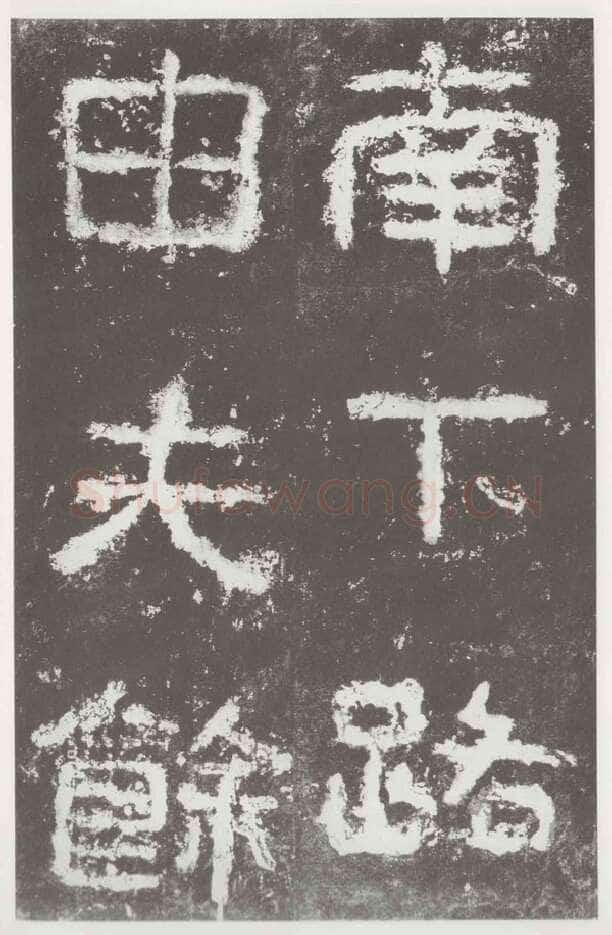 南下路
由夫餘
Shufawang.CN